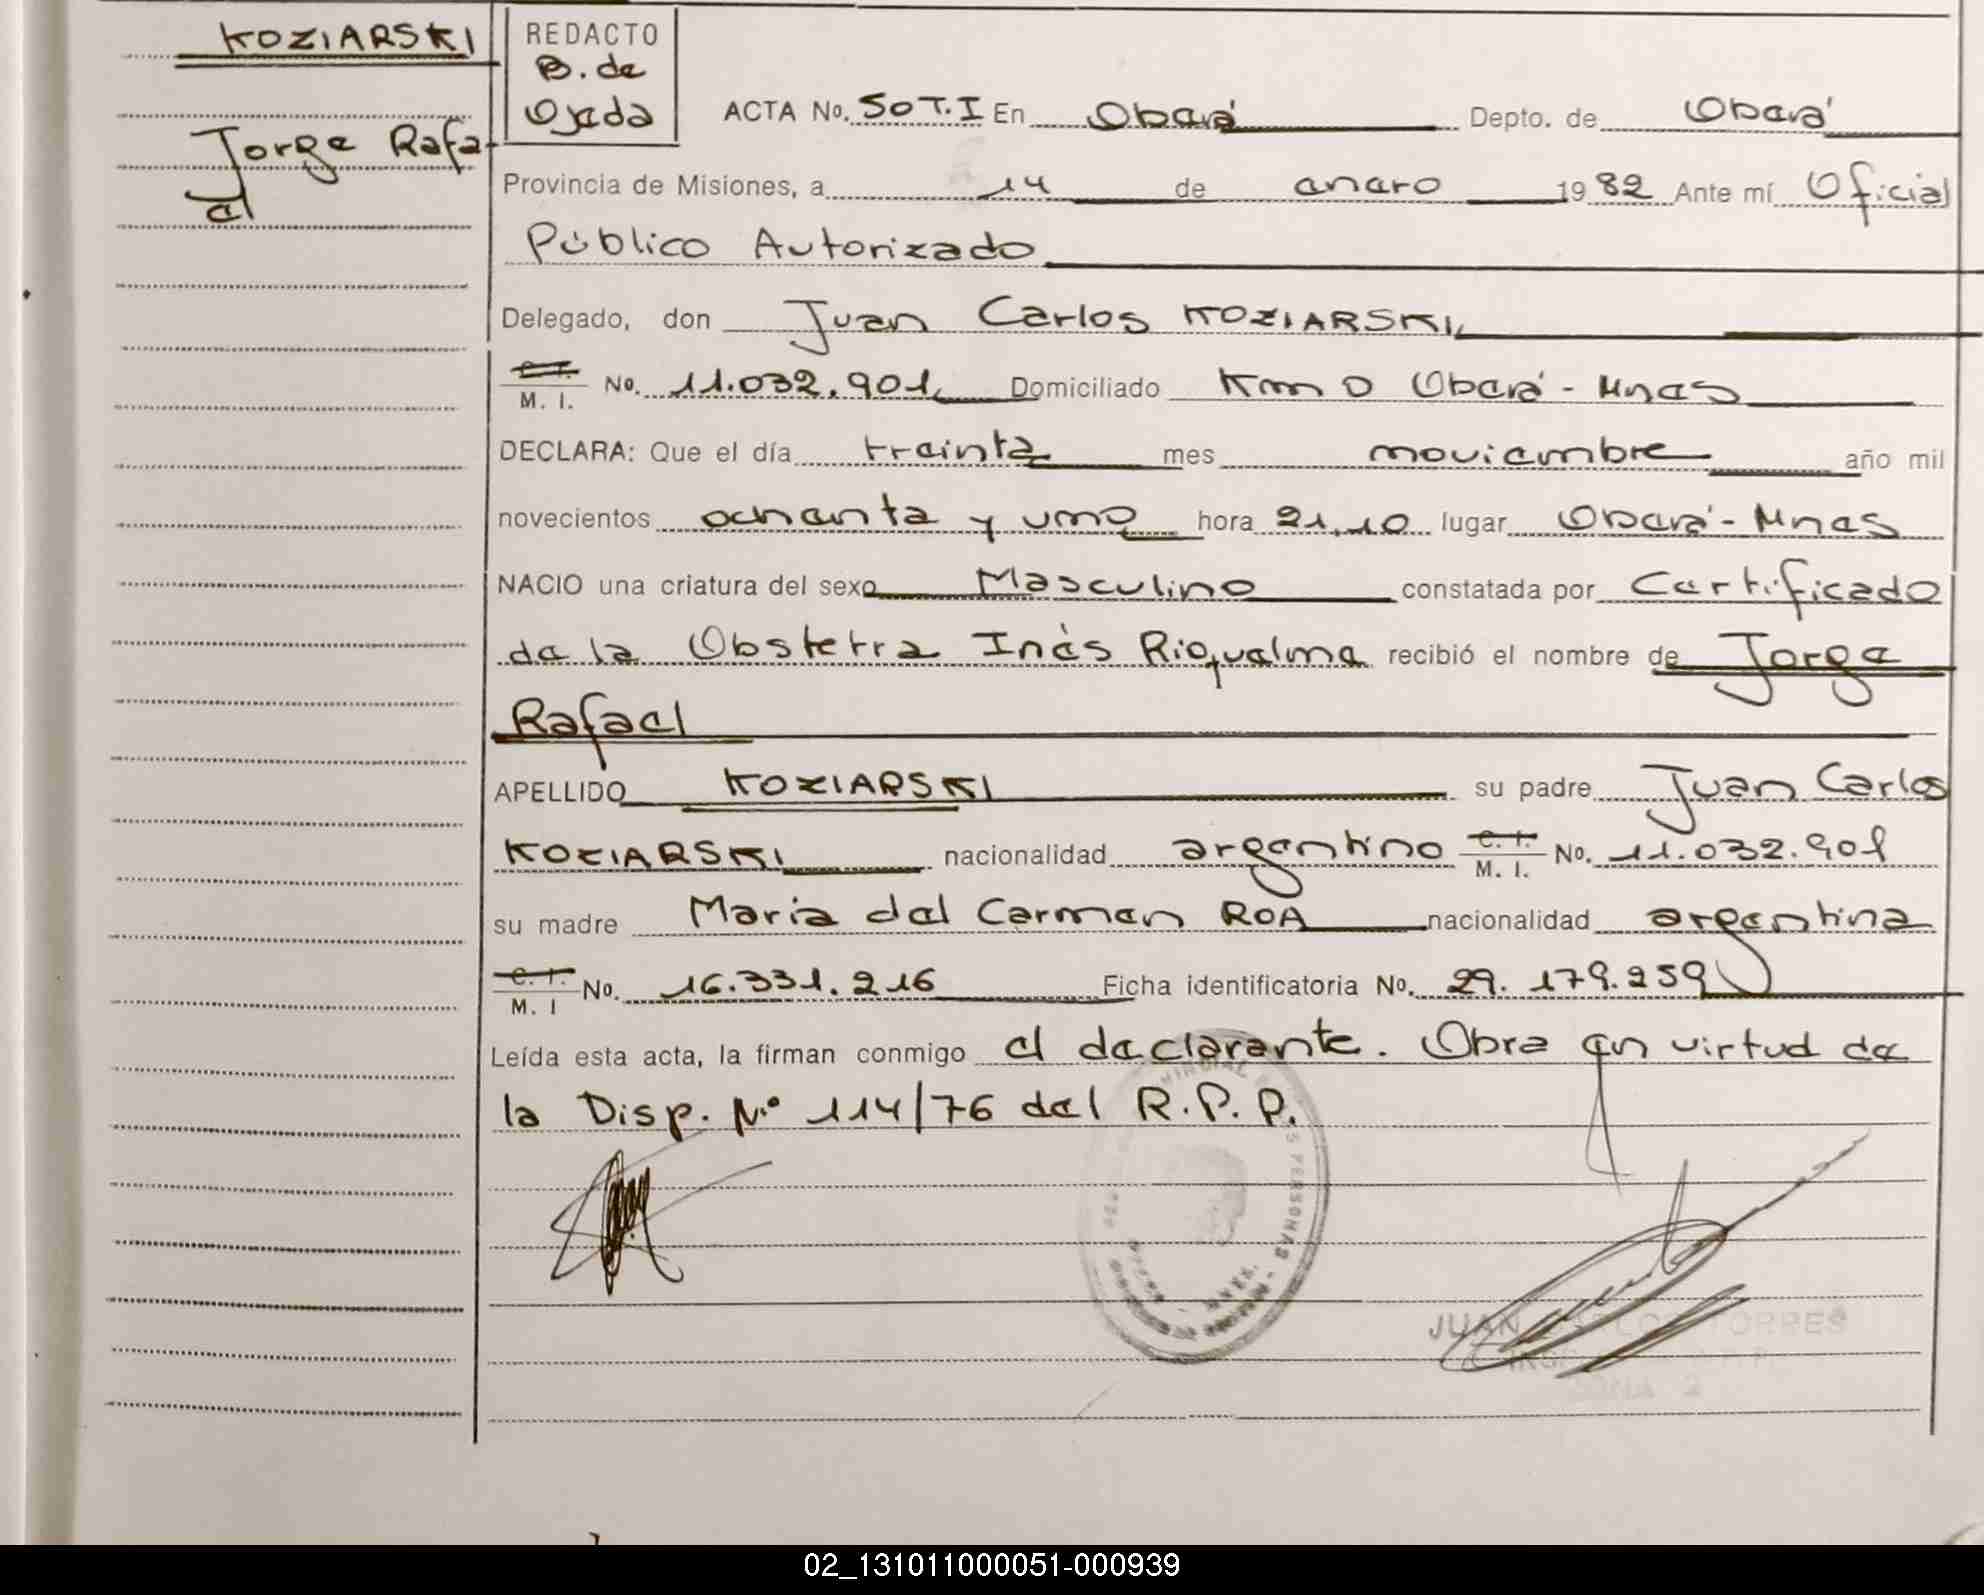 KOZIARSKI
Jorge Rafa-
el
REDACTO
B. de
Ojeda
ACTA No. 50 T.I En Oberá Depto. de Oberá
Provincia de Misiones, a 14 de enero 1982 Ante mí Oficial
Público Autorizado
Delegado, don Juan Carlos KOZIARSKI
C. I. M. I. No. 11.032.901 Domiciliado Km 0 Oberá - Mnes
DECLARA: Que el día treinta mes noviembre año mil
novecientos ochenta y uno hora 21,10 lugar Oberá - Mnes
NACIO una criatura del sexo Masculino constatada por Certificado
de la Obstetra Inés Riquelme recibió el nombre de Jorge
Rafael
APELLIDO KOZIARSKI su padre Juan Carlos
KOZIARSKI nacionalidad argentino C. I. M. I. No. 11.032.901
su madre Maria del Carmen ROA nacionalidad argentina
C. I. M. I No. 16.331.216 Ficha identificatoria No. 29.179.259
Leída esta acta, la firman conmigo el declarante. Obra en virtud de
la Disp. Nº 114/76 del R.P.P.
JUAN CARLOS TORRES
ZONA 2
02_131011000051-000939